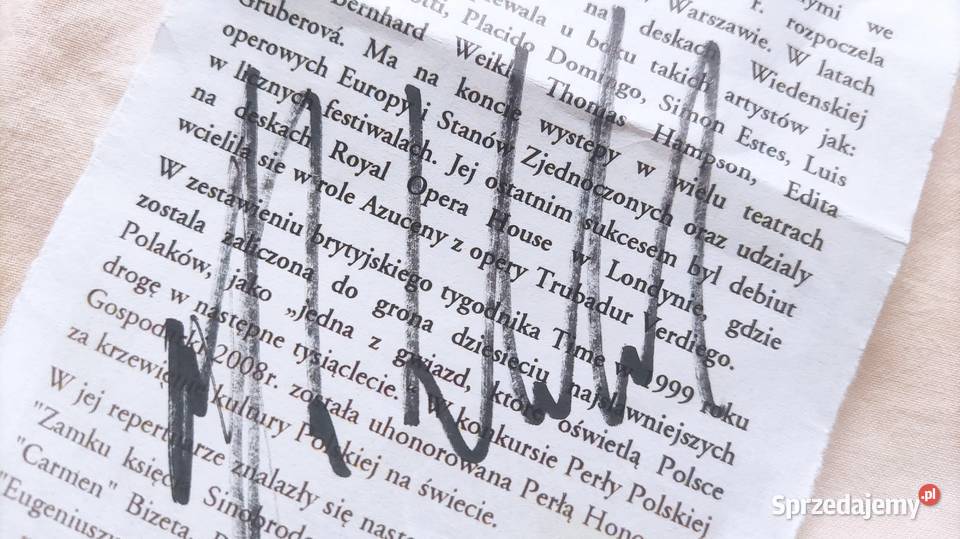 nymi we
r. rozpoczela
Warszawie. W latach
na deskach Wiedenskiej
u boku takich artystów jak:
Placido Domingo, Simon Estes, Luis
Bernhard Weikl, Thomas Hampson, Edita
Gruberová. Ma na koncie wystepy w wielu teatrach
operowych Europy i Stanów Zjednoczonych oraz udzialy
w licznych festiwalach. Jej ostatnim sukcesem byl debiut
na deskach Royal Opera House w Londynie, gdzie
wcielila się w role Azuceny z opery Trubadur Verdiego.
W zestawieniu brytyjskiego tygodnika Time w 1999 roku
zostala zaliczona do grona dziesięciu najsławniejszych
Polaków, jako „jedna z gwiazd, które oświetlą Polsce
drogę w następne tysiąclecie. W konkursie Perły Polskiej
Gospodarki 2008r. została uhonorowana Perłą Hono
za krzewienie kultury Polskiej na świecie.
W jej repertuarze znalazły się nastę
"Zamku księcia Sinobrode
"Carmen" Bizeta,
"Eugeniusz
Sprzedajemy.pl